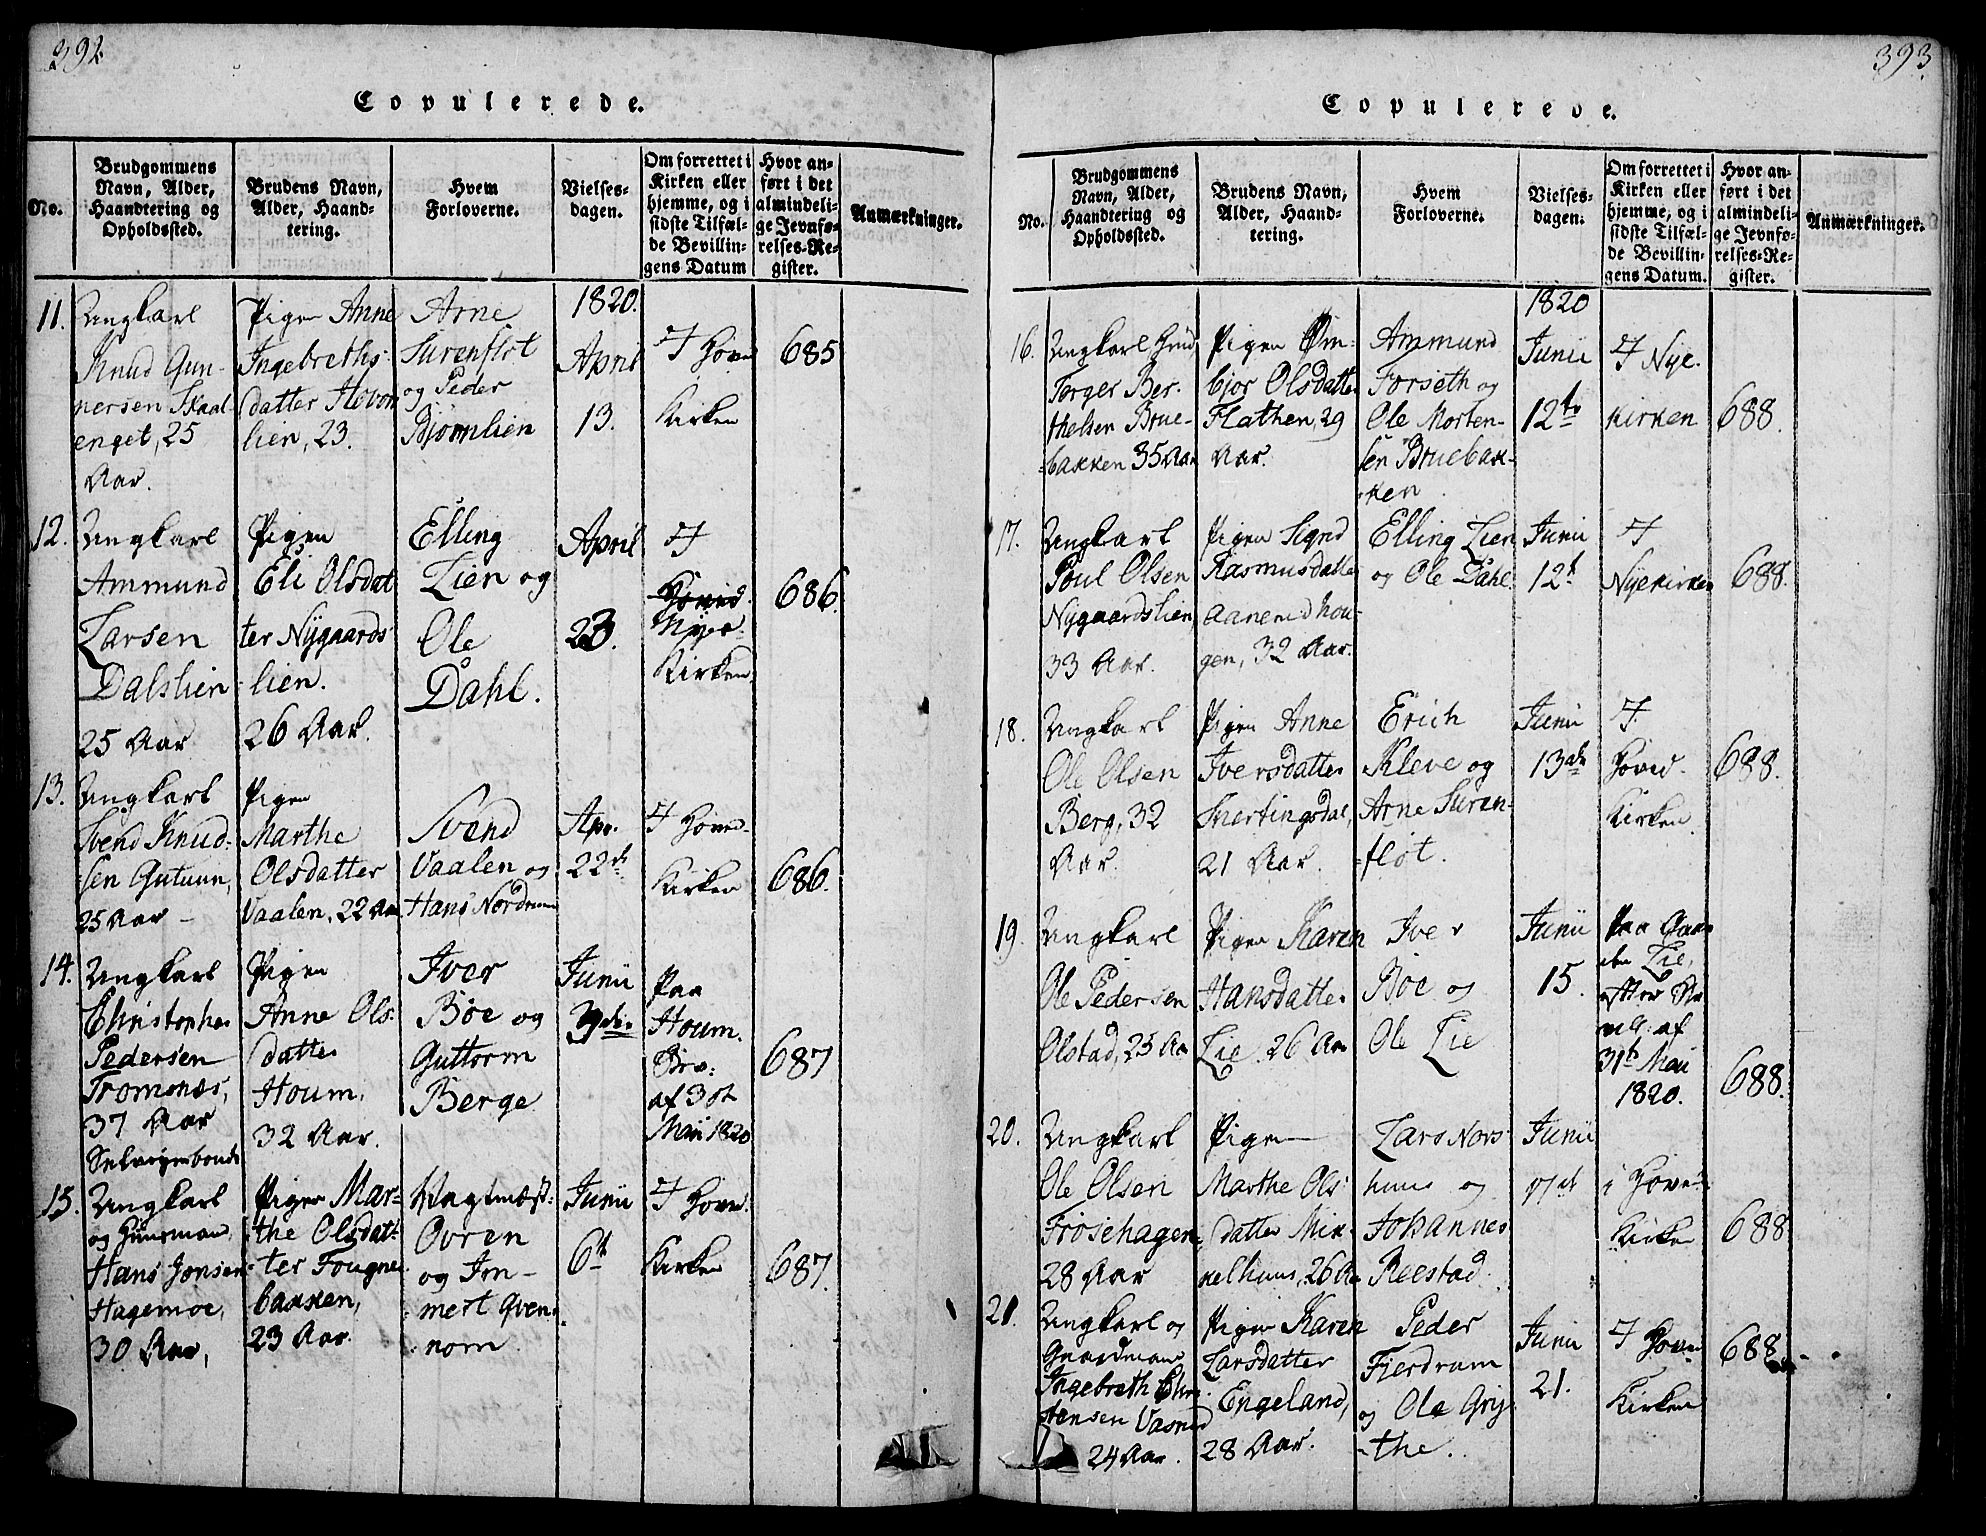 392
Copulerede.
No.
Brudgommens
Navn, Alder,
Haandtering og
Opholdssted.
Brudens Navn,
Alder, Haand-
tering.
Hvem
Forloverne.
Vielses-
dagen.
Om forrettet i
Kirken eller
hjemme, og i
sidste Tilfæl-
de Bevillin-
gens Datum
Hvor an-
ført i det
almindeli-
ge Jevnfø-
relses-Re-
gister.
Anmærkninger.
11.
Ungkarl
Knud Gun-
nersen Skaal-
enget, 25
Aar.
Pigen Anne
Ingebreths-
datter Hovon
lien, 23.
Arne
Surenflot
og Peder
Bjørnlien
1820.
April
13.
I Hoved
Kirken
685
12.
Ungkarl
Ammund
Larsen
Dalslien
25 Aar
Pigen
Eli Olsdat
ter Nygaards-
lien.
26 Aar.
Elling
Lien og
Ole
Dahl.
April
23.
I
Hoved
Nye-
Kirken.
686.
13.
Ungkarl
Svend Knud-
sen Gutuun,
25 Aar -
Pigen
Marthe
Olsdatter
Vaalen, 22 Aar
Svend
Vaalen og
Hans Nordrum
Apr.
22de
I Hoved-
Kirken
686.
14.
Ungkarl
Christopher
Pedersen
Tromsnæs,
37 Aar
Selveierbonde
Pigen
Anne Ols-
datter
Houm,
32 Aar.
Iver
Böe og
Guttorm
Berge
Junii
3die
Paa
Houm.
Brev:
af 3die
Maii 1820
687
15.
Ungkarl
og Huusmand
Hans Jonsen
Hagemoe,
30 Aar,
Pigen Mar-
the Olsdat-
ter Fougne
bakken,
23 Aar.
Vagtmæst:
Ovren
og Im-
mert Qven-
nom.
Junii
6te
I Hoved
Kirken
687.
393.
Copulerede.
No.
Brudgommens
Navn, Alder,
Haandtering og
Opholdssted.
Brudens Navn,
Alder, Haand-
tering.
Hvem
Forloverne.
Vielses-
dagen.
Om forrettet i
Kirken eller
hjemme, og i
sidste Tilfæl-
de Bevillin-
gens Datum.
Hvor an-
ført i det
almindeli-
ge Jevnfø-
relses-Re-
gister.
Anmærkninger.
16.
Ungkarl Gud
Torger Ber-
thelsen Brue-
bakken 35 Aar
Pigen Øm-
bjor Olsdatter
Flathen, 29
Aar.
Ammund
Forseth og
Ole Morten-
sen Bruebak-
ken.
1820
Junii
12te
I Nye-
Kirken
688.
17.
Ungkarl
Poul Olsen
Nygaardslien,
33 Aar.
Pigen Signd
Rasmusdatter
Aanerudhou-
gen, 32 Aar.
Elling Lien
og Ole Dahl
Junii
12te
I
Nyekirken
688.
18.
Ungkarl
Ole Olsen
Berg, 32
Aar.
Pigen Anne
Iversdatter
Snertingsdal,
21 Aar.
Erich
Kleve og
Arne Suren-
flot.
Junii
13de
I
Hoved-
Kirken.
688.
19.
Ungkarl
Ole Pedersen
Olstad, 25 Aar
Pigen Karen
Hansdatter
Lie. 26 Aar
Iver
Böe og
Ole Lie
Junii
15.
Paa Gaar-
den Lie,
efter
af
31te Maii
1820.
688.
20.
Ungkarl
Ole Olsen
Frösehagen
28 Aar
Pigen
Marthe Ols-
datter Mik-
kelhuus, 26 Aar
Lars Nors-
huus og
Johannes
Reestad
Junii
17de
i Hoved-
Kirken
688
21.
Ungkarl og
Gaardmand
Ingebreth Chri-
stensen Vasrud
24 Aar.
Pigen Karen
Larsdatter
Engeland,
28 Aar.
Peder
Fierdrum
og Ole Gry-
the.
Junii
21.
I Hoved
Kirken
688